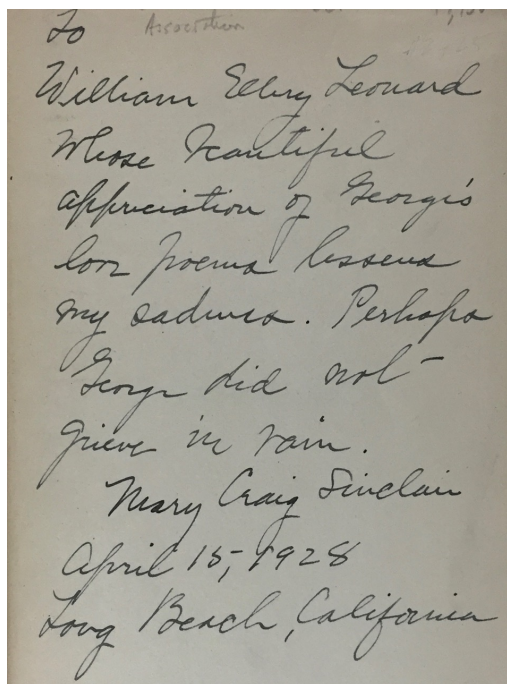 Association
To
William Ellery Leonard
whose beautiful
appreciation of George's
love poems lessens
my sadness. Perhaps
George did not
grieve in vain.
Mary Craig Sinclair
April 15, 1928
Long Beach, California